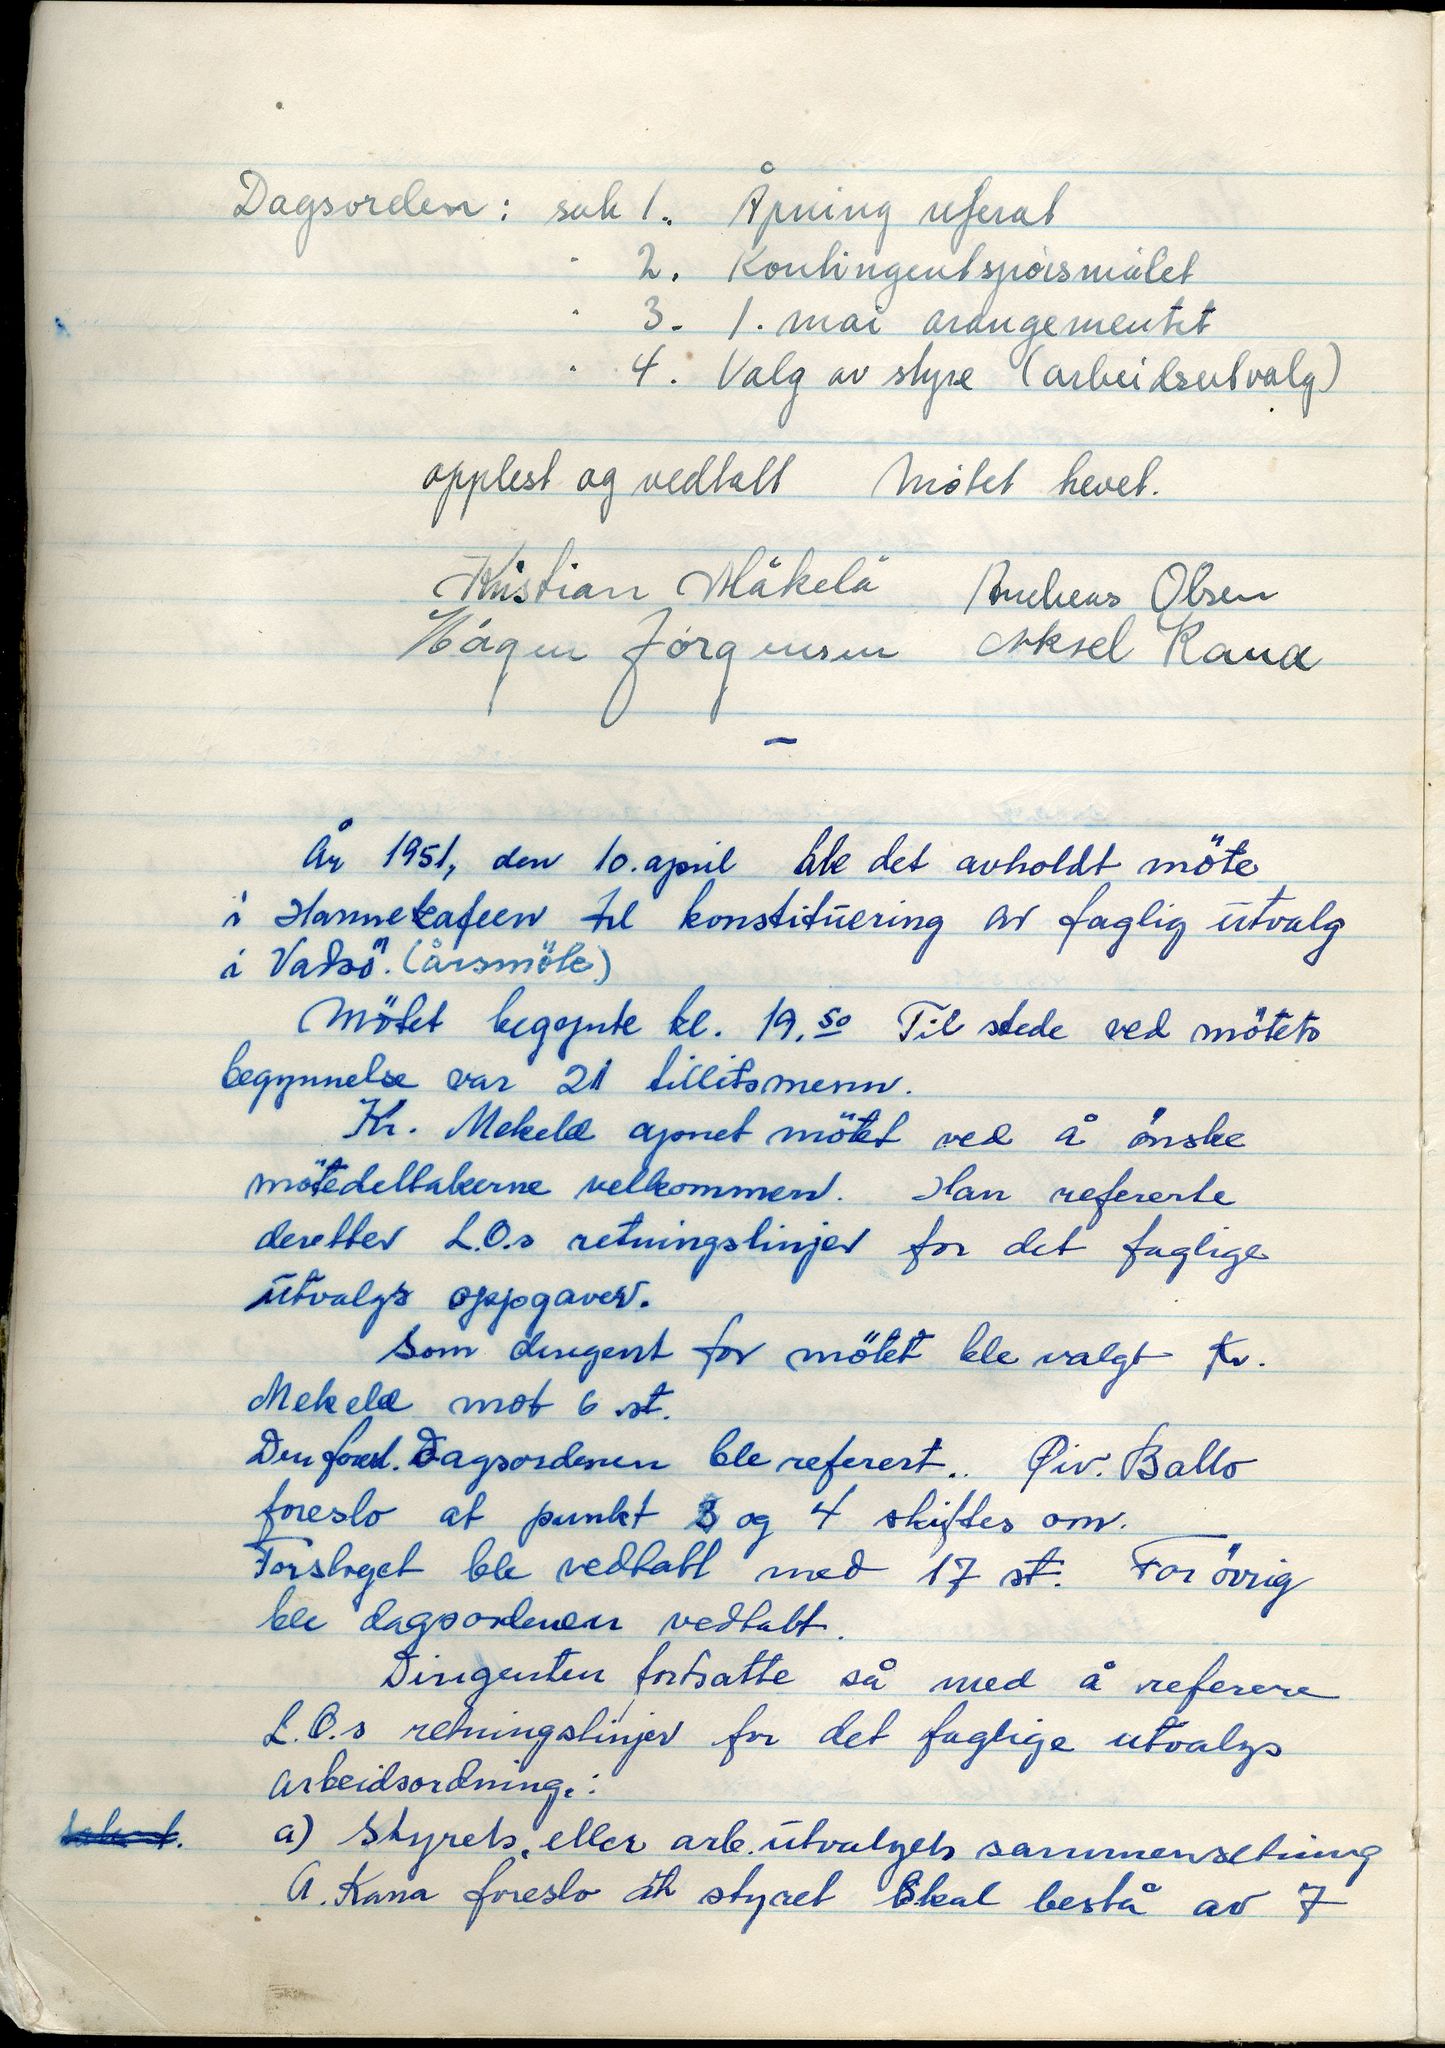 Dagsorden: sak 1. Åpning referat
" 2. Kontingentspörsmålet
" 3. 1. mai arangementet
" 4. Valg av styre (arbeidsutvalg)
opplest og vedtatt Mötet hevet.
Kristian Mäkelä Andreas Olsen
Hågen Jörgensen Aksel Kana
—
År 1951, den 10. april ble det avholdt möte
i Hannekafeen til konstituering av faglig utvalg
i Vadsö. (årsmöte)
Mötet begynte kl. 19.50 Til stede ved mötets
begynnelse var 21 tillitsmenn.
Kr. Mekelæ åpnet mötet ved å önske
mötedeltakerne velkommen. Han refererte
deretter L.O.s retningslinjer for det faglige
utvalgs oppgaver.
Som dirigent for mötet ble valgt Kr.
Mekelæ mot 6 st.
Den foresl. Dagsordenen ble referert. Øiv. Ballo
foreslo at punkt 3 og 4 skiftes om.
Forslaget ble vedtatt med 17 st. For övrig
ble dagsordenen vedtatt.
Dirigenten fortsatte så med å referere
L.O.s retningslinjer for det faglige utvalgs
arbeidsordning.:
a) Styrets, eller arb. utvalgets sammensetning
A. Kana foreslo at styret skal bestå av 7